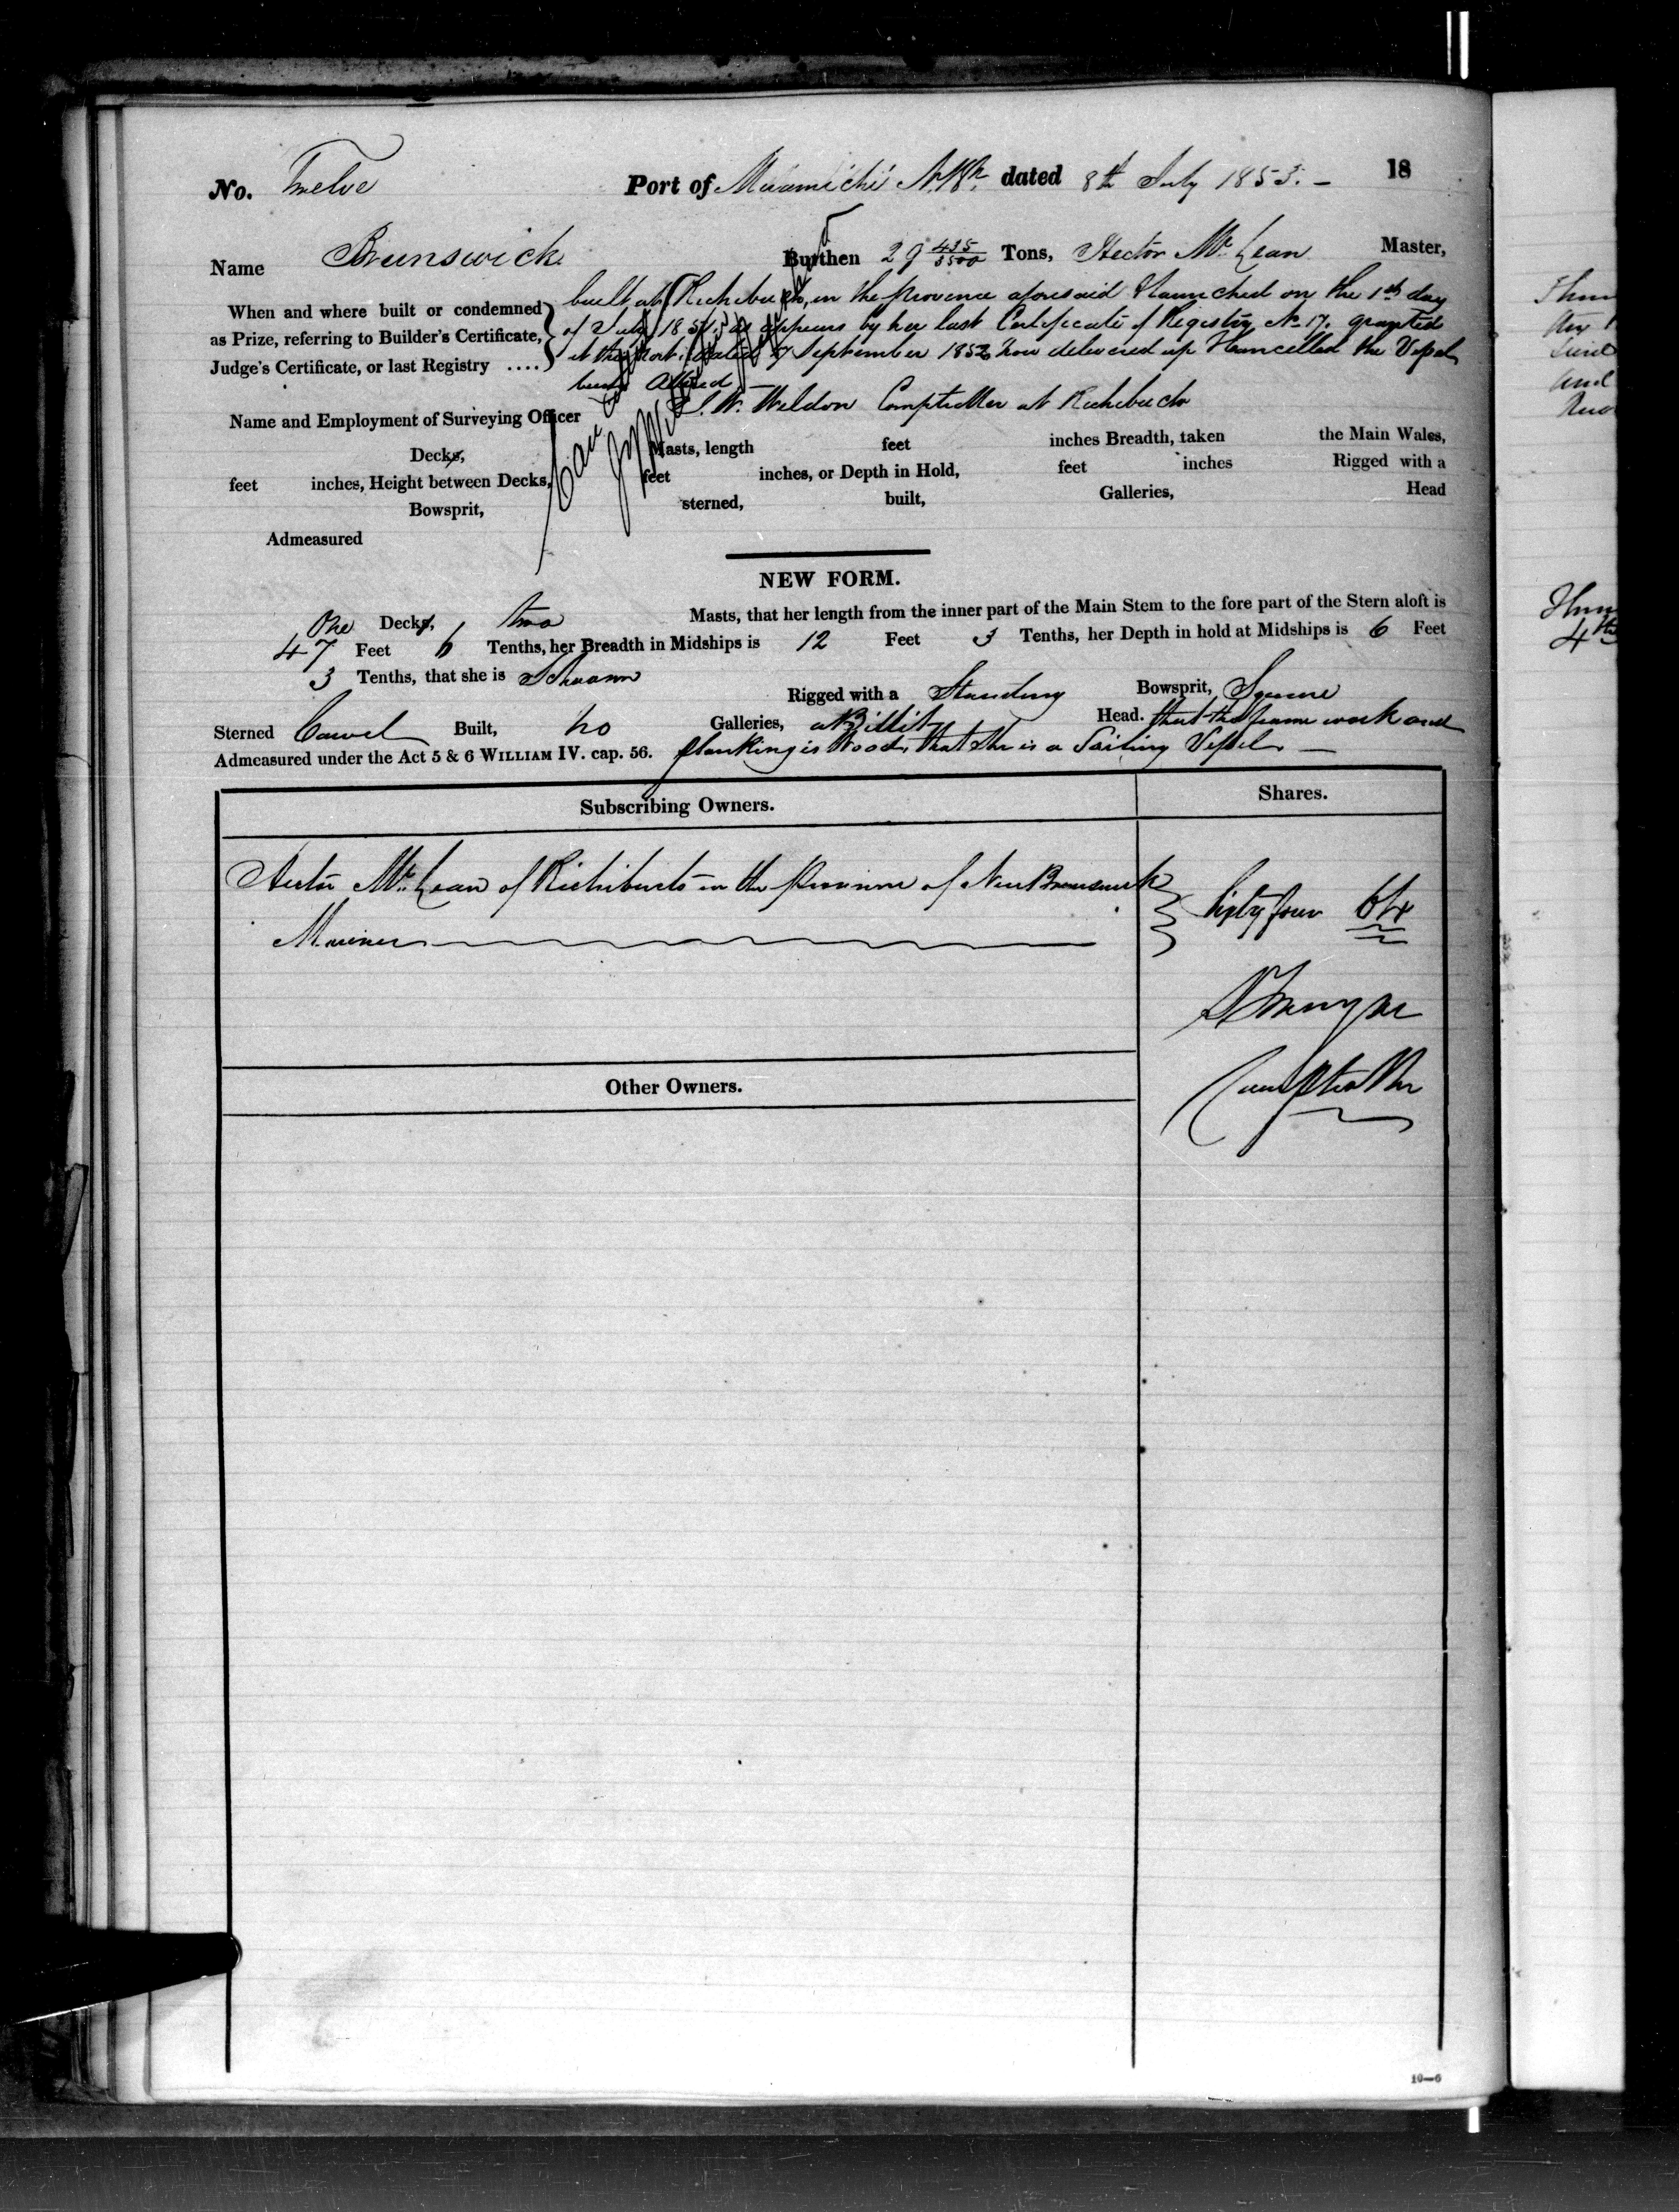 No. Twelve Port of Miramichi N.Bk. dated 8th July 1853. — 18
Name Brunswick Burthen 29 435/3500 Tons, Hector McLean Master,
When and where built or condemned as Prize, referring to Builder's Certificate, Judge's Certificate, or last Registry ....
built at Richibucto, in the Province aforesaid & launched on the 1st day
of July 1851. as appears by her last Certificate of Registry No. 17. granted
at this Port. dated 7 September 1852 now delivered up & cancelled the Vessel
being Altered
Name and Employment of Surveying Officer J. W. Weldon Comptroller at Richibucto
Decks, Masts, length feet inches Breadth, taken the Main Wales,
feet inches, Height between Decks, feet inches, or Depth in Hold, feet inches Rigged with a
Bowsprit, sterned, built, Galleries, Head
Admeasured
NEW FORM.
One Decks, two Masts, that her length from the inner part of the Main Stem to the fore part of the Stern aloft is
47 Feet 6 Tenths, her Breadth in Midships is 12 Feet 3 Tenths, her Depth in hold at Midships is 6 Feet
3 Tenths, that she is Schooner Rigged with a Standing Bowsprit, Square
Sterned Carvel Built, no Galleries, a Billet Head. that the frame work and
Admeasured under the Act 5 & 6 WILLIAM IV. cap. 56. planking is Wood, that she is a Sailing Vessel —
Subscribing Owners. Shares.
Hector McLean of Richibucto in the Province of New Brunswick
Mariner
Sixty four 64
Comptroller
Other Owners.
10—6